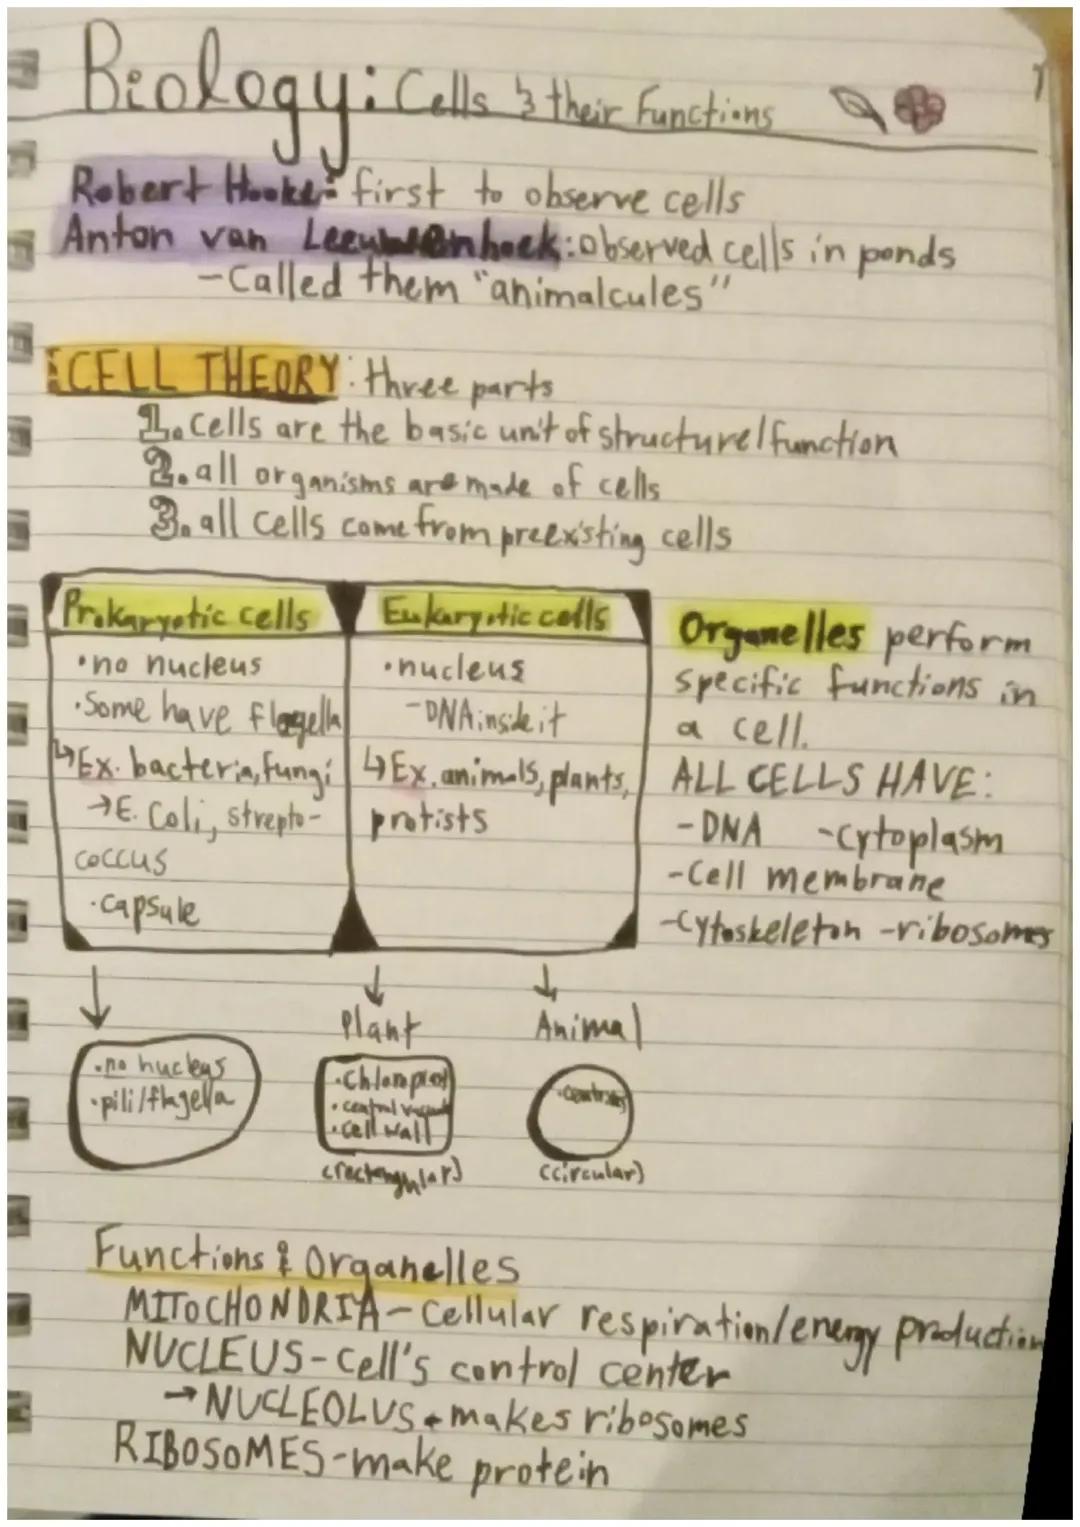 Biology: Cells & their Functions
Robert Hooke: first to observe cells
Anton van Leeuwenhoek: observed cells in ponds
-Called them "animalcules"
CELL THEORY: three parts
1. Cells are the basic unit of structure/function
2. all organisms are made of cells
3. all cells come from preexisting cells
Prokaryotic cells
•no nucleus
•Some have flagella
↳Ex. bacteria, fungi
→E. Coli, strepto-
coccus
•capsule
Eukaryotic cells
•nucleus
-DNA inside it
↳Ex. animals, plants,
protists
Organelles perform
specific functions in
a cell.
ALL CELLS HAVE:
-DNA -cytoplasm
-Cell membrane
-Cytoskeleton -ribosomes
•no nucleus
•pili/flagella
Plant
•Chloroplast
•central vacuole
•cell wall
(rectangular)
Animal
(circular)
Functions & Organelles
MITOCHONDRIA - Cellular respiration/energy production
NUCLEUS - Cell's control center
→NUCLEOLUS - makes ribosomes
RIBOSOMES - make protein